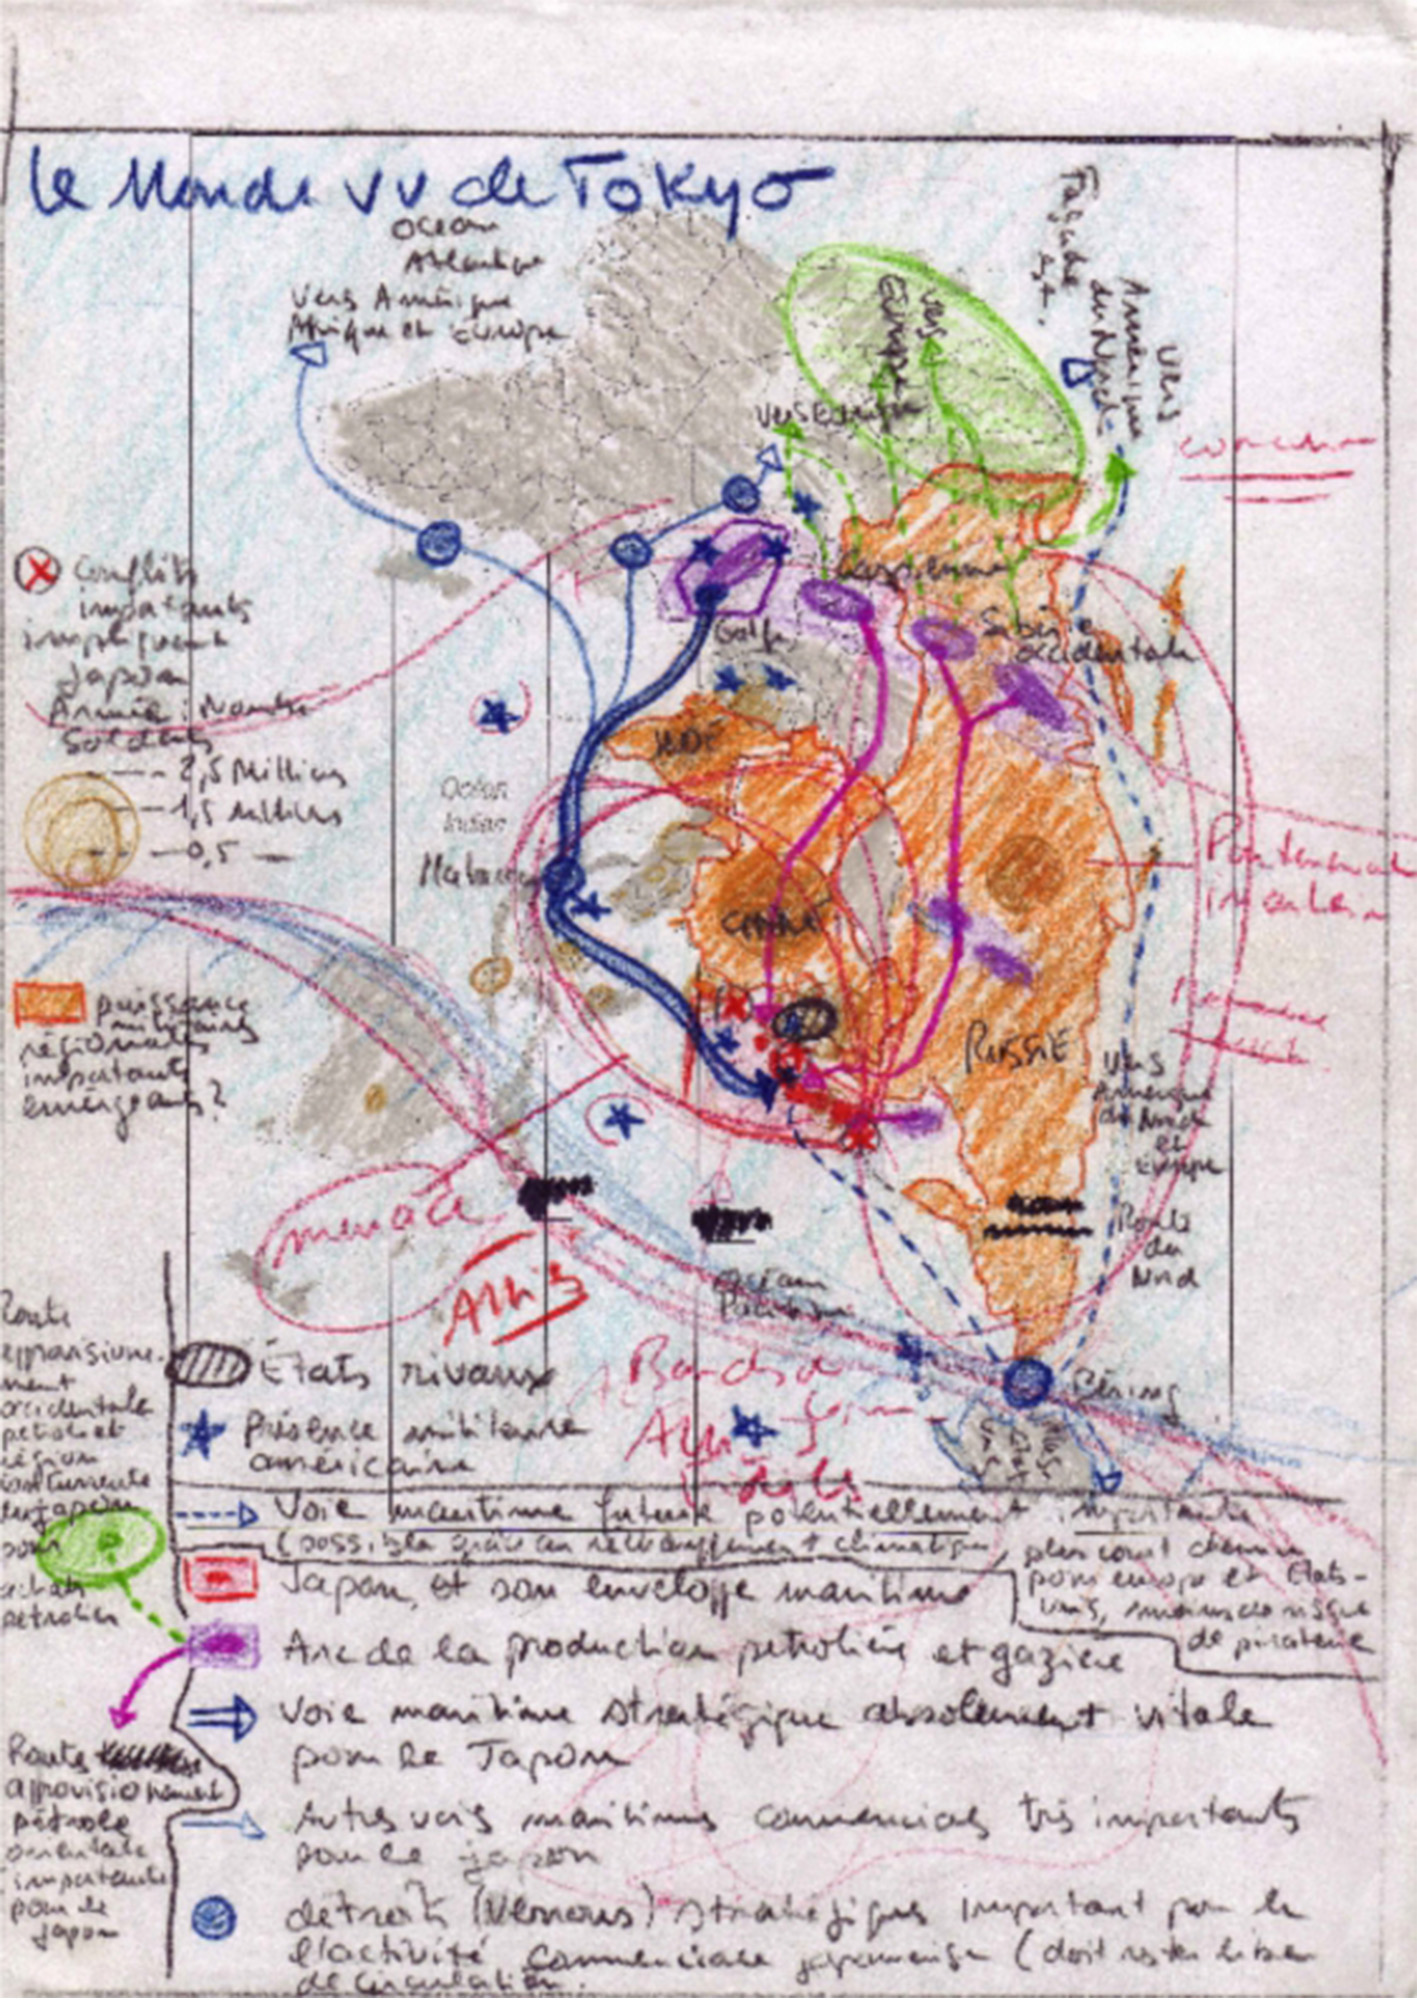 Le Monde vu de Tokyo
Océan
Atlantique
Vers Amérique
Afrique et Europe
Vers
Europe
Vers Europe
Façade
est.
Vers
Amérique
du Nord
Conflits
importants
impliquant
Japon
Armée : Nombre
Soldats
2,5 Millions
1,5 millions
0,5
Caspienne
Golfe
Sibérie
occidentale
INDE
Océan
Indien
Malacca
CHINE
RUSSIE
puissance
militaires
régionales
importants
émergeants ?
Vers
Amérique
du Nord
et
Europe
Route
du
Nord
menace
Alliés
Océan
Pacifique
Béring
États rivaux
Présence militaire
américaine
Route
occidentale
pétrole et
région
pour
achats
pétrolier
Voie maritime future potentiellement importante
(possible grâce au réchauffement climatique, plus court chemin
pour europe et États-
Unis, moins de risque
de piraterie
Japon, et son enveloppe maritime
Arc de la production pétrolière et gazière
Voie maritime stratégique absolument vitale
pour le Japon
Autres voies maritimes commerciales très importants
pour le japon
Route
approvisionnement
pétrole
orientale
importante
pour le
japon
détroits (Verrous) stratégiques important pour le
l'activité commerciale japonaise (doit rester libre
de circulation.